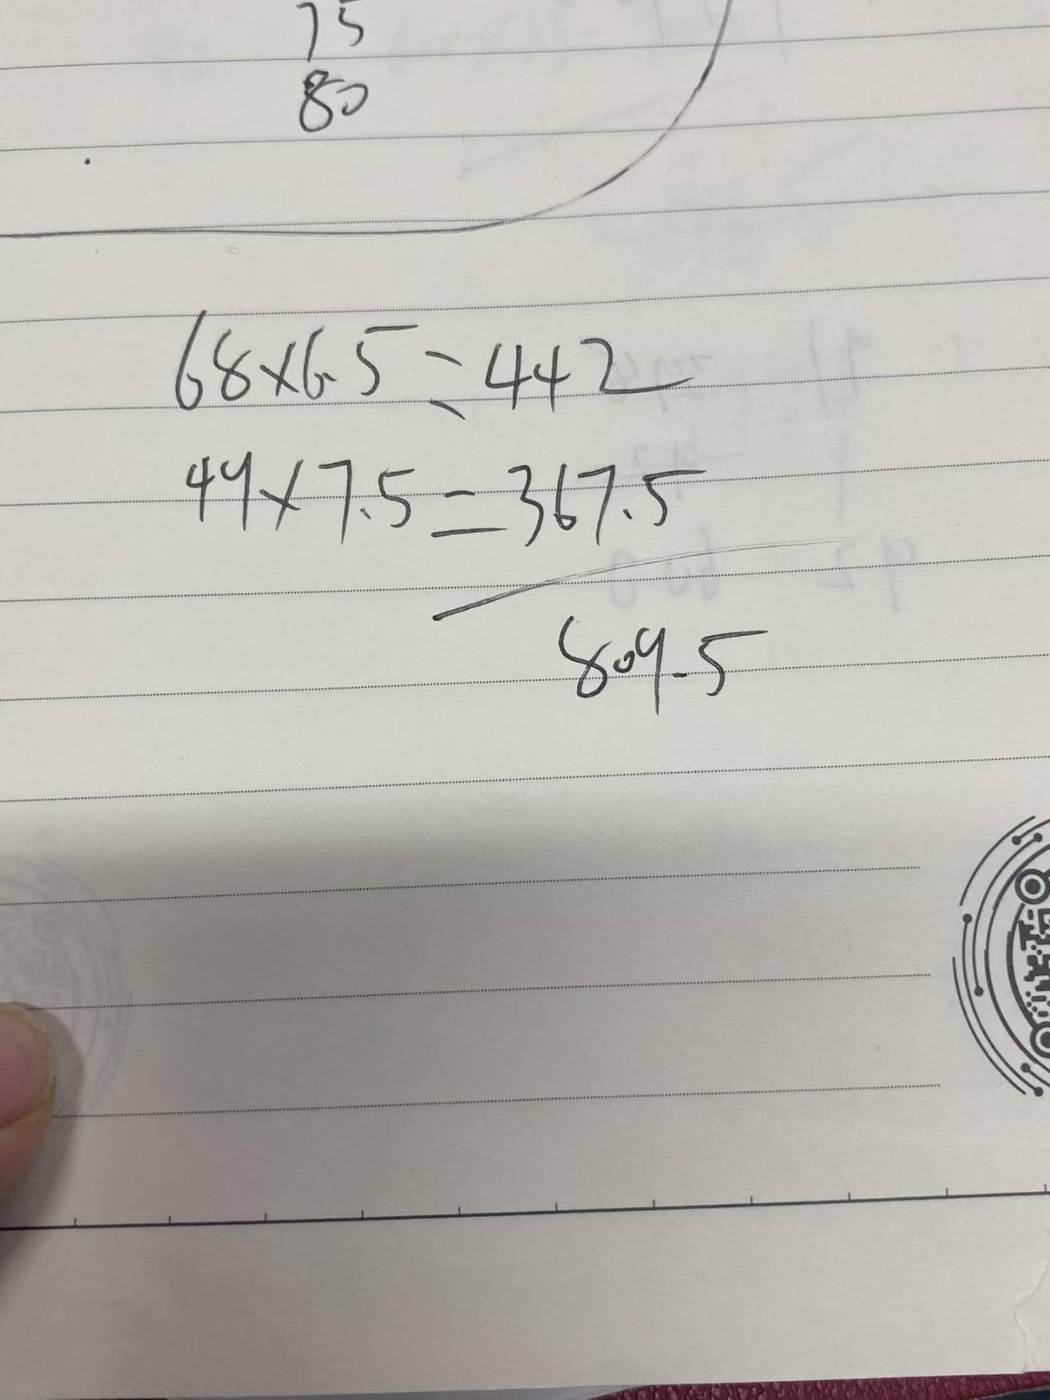 75
80
68×6.5=442
49×7.5=367.5
809.5